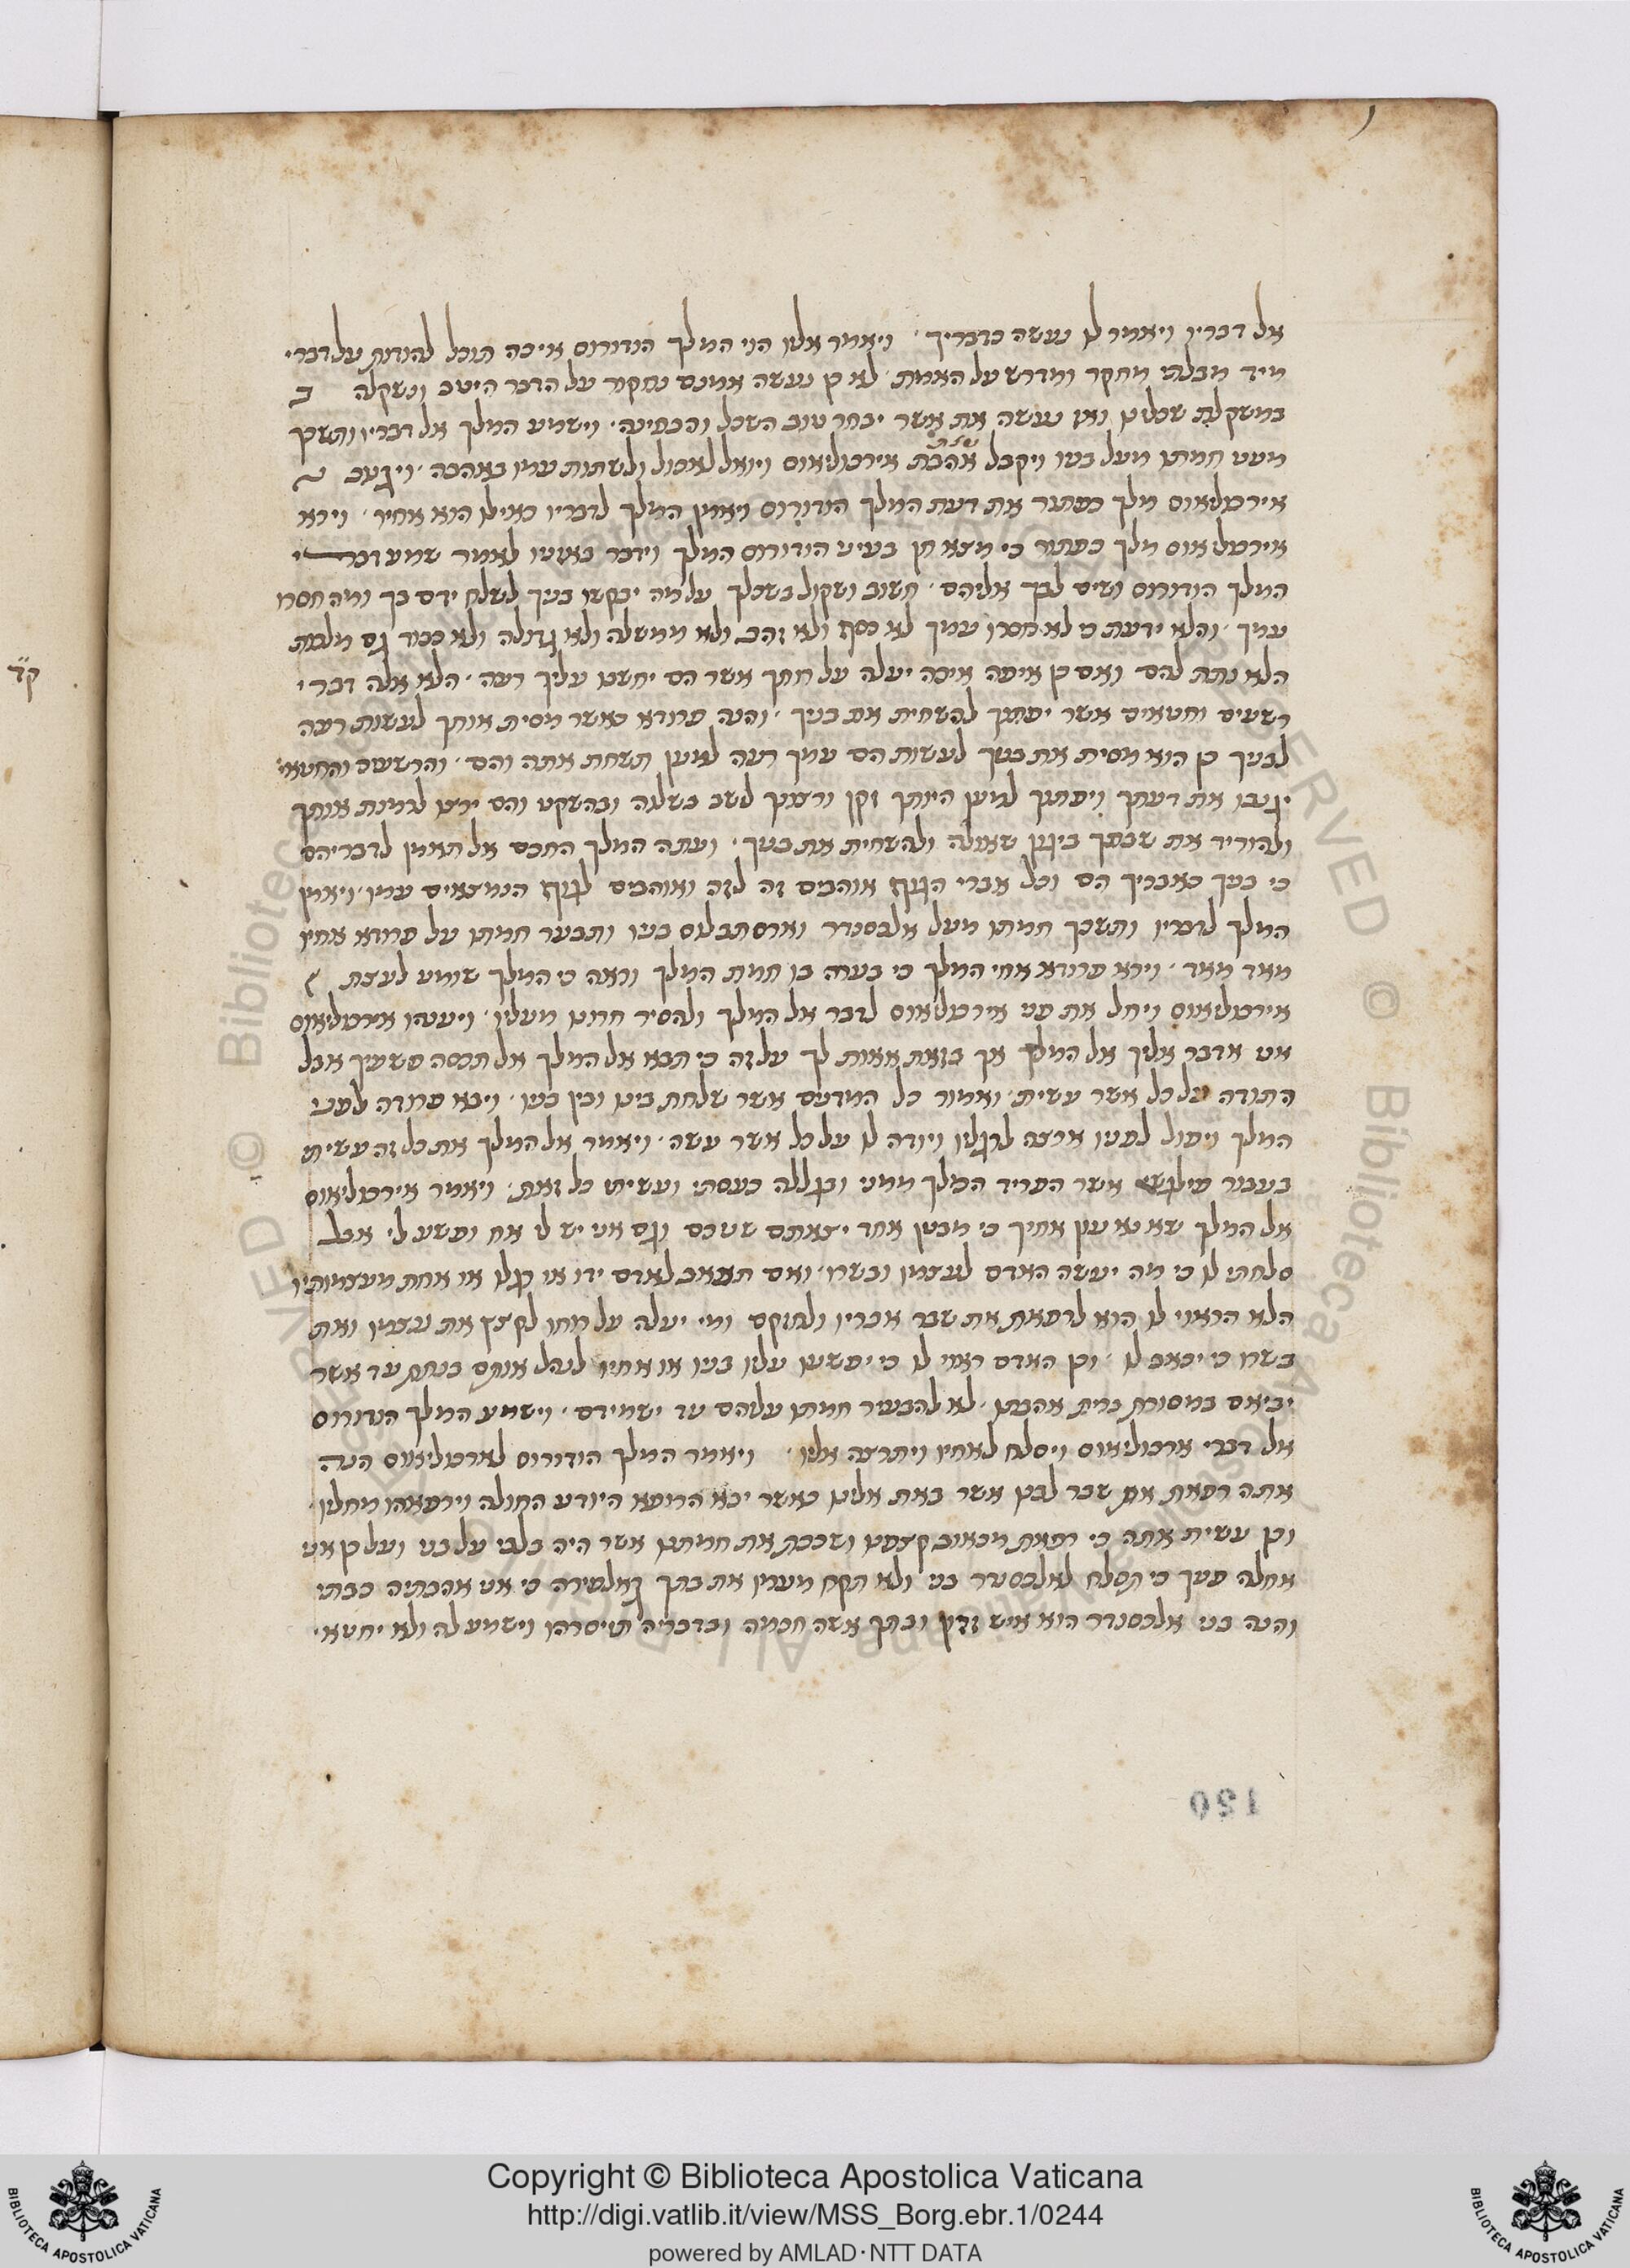 אל דבריו ויאמר לו נעשה כדבריך . ויאמר אליו הוי המלך הורודוס איכה תוכל להורות על דברי
מיד מבלתי מחקר ומדרש על האמת . לא כן נעשה אמנם נחקור על הדבר היטב ונשקלה
במשקלת שכלינו ואז נעשה את אשר יבחר טוב השכל והבחינה . וישמע המלך אל דבריו ותשכך
מעט חמתו מעל בניו ויקבל אהבת ארכילאוס ויואל לאכול ולשתות עמו באהבה .
ארכילאוס מלך כפתור את דעת המלך הורודוס ויאמן המלך לדבריו כאילו הוא אחיו . וירא
ארכילאוס מלך כפתור כי מצא חן בעיני הורודוס המלך וידבר באזניו לאמר שמע דברי
המלך הורודוס ושים לבך אליהם . חשוב ושקול בשכלך על מה יבקשו בניך לשלח ידם בך ומה חסרו
עמך . והלא ידעת כי לא חסרו עמך לא כסף ולא זהב ולא ממשלה ולא גדולה ולא כבוד גם מלכות
הלא נתת להם ואם כן איפה איכה יעלה על רוחך אשר הם יחשבו עליך רעה . הלא אלה דברי
רשעים וחטאים אשר יפתוך להשחית את בניך . והנה פרודא כאשר מסית אותך לעשות רעה
לבניך כן הוא מסית את בניך לעשות הם עמך רעה למען תשחת אתה והם . והרשעים והחטאי'
יגנבו את דעתך ויפתוך למען היותך זקן ורצונך לשב בשלוה ובהשקט והם ירצו להמית אותך
ולהוריד את שבתך ביגון שאולה ולהשחית את בניך . ועתה המלך החכם אל תאמן לדבריהם
כי בניך כאבריך הם וכל אברי הגוף אוהבים זה לזה ואוהבים לגוף הנמצאים עמו . ויאמן
המלך לדבריו ותשכך חמתו מעל אלכסנדר וארסתבלוס בניו ותבער חמתו על פרודא אחיו
מאד מאד . וירא פרודא אחי המלך כי בערה בו חמת המלך וראה כי המלך שומע לעצת
ארכילאוס ויחל את פני ארכילאוס לדבר אל המלך ולהסיר חרונו מעליו . ויענהו ארכילאוס
אני אדבר אליך אל המלך אך בזאת אאות לך על זה כי תבא אל המלך אל תכסה פשעיך אבל
התודה על כל אשר עשית . ואמור כל המדנים אשר שלחת בינו ובין בניו . ויבא פרודה לפני
המלך ויפול לפניו ארצה לרגליו ויודה לו על כל אשר עשה . ויאמר אל המלך את כל זה עשיתי
בעבור פילגשי אשר הפריד המלך ממני ובגללה כעסתי ועשיתי כל זאת . ויאמר ארכילאוס
אל המלך שא נא עון אחיך כי מבטן אחד יצאתם שניכם וגם אני יש לי אח ופשע לי אבל
סלחתי לו כי מה יעשה האדם לעצמו ובשרו . ואם תכאב לאדם ידו או רגלו או אחת מעצמותיו
הלא הראוי לו הוא לרפאת את שבר אבריו ולחזקם ומי יעלה על רוחו לקצץ את עצמו ואת
בשרו כי יכאב לו . וכן האדם ראוי לו כי יפשעו עליו בניו או אחיו לנהל אותם בנחת עד אשר
יביאם במסורת ברית אהבתו . לא להבעיר חמתו עליהם עד ישמידם . וישמע המלך הורודוס
אל דברי ארכילאוס ויסלח לאחיו ויתרצה אליו . ויאמר המלך הורודוס לארכילאוס הנה
אתה רפאת את שבר לבינו אשר באת אלינו כאשר יבא הרופא היודע החולה וירפאהו מחליו .
וכן עשית אתה כי רפאת מכאוב קצפינו ושככת את חמתינו אשר היה בלבי על בני ועל כן אני
אחלה פניך כי תסלח לאלכסנדר בני ולא תקח מעמו את בתך כי אני אהבתיה כבתי
והנה בני אלכסנדר הוא איש ובתך אשה חכמה ובדבריה תיסרהו וישמע לה ולא יחטא .
ק״ד
130
Copyright © Biblioteca Apostolica Vaticana
http://digi.vatlib.it/view/MSS_Borg.ebr.1/0244
powered by AMLAD·NTT DATA
BIBLIOTECA APOSTOLICA VATICANA
BIBLIOTECA APOSTOLICA VATICANA